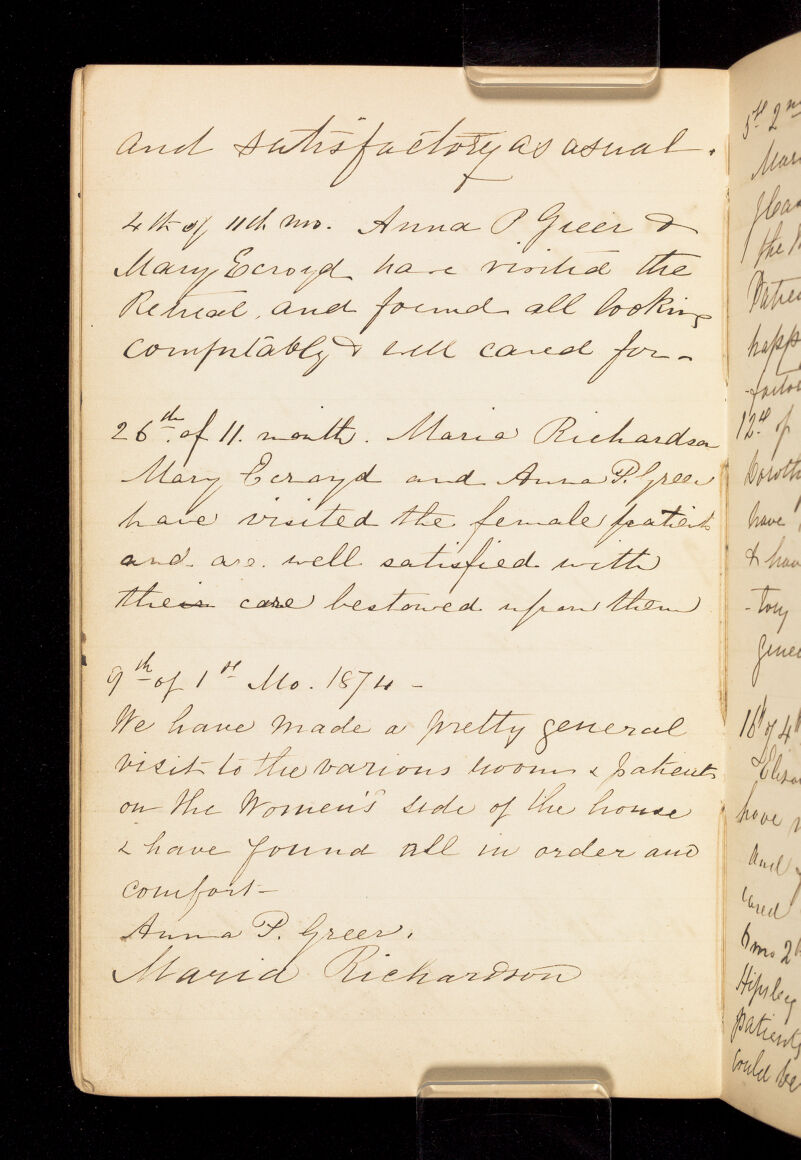 and satisfactory as usual.
4th of 11th mo. Anna P Greer &
Mary Ecroyd have visited the
Retreat, and found all looking
comfortably & well cared for -
26th of 11. month. Maria Richardson
Mary Ecroyd and Anna P. Greer
have visited the female patients
and are well satisfied with
the care bestowed upon them
9th of 1st Mo. 1874 -
We have made a pretty general
visit to the various rooms & patients
on the Women's side of the house
& have found all in order and
comfort -
Anna P. Greer.
Maria Richardson
5th 2nd
the
happ
12th of
have
& hav
-tory
gene
16th of 4th
have
and
cared
6 mo 2
Hipsley
patients
could be